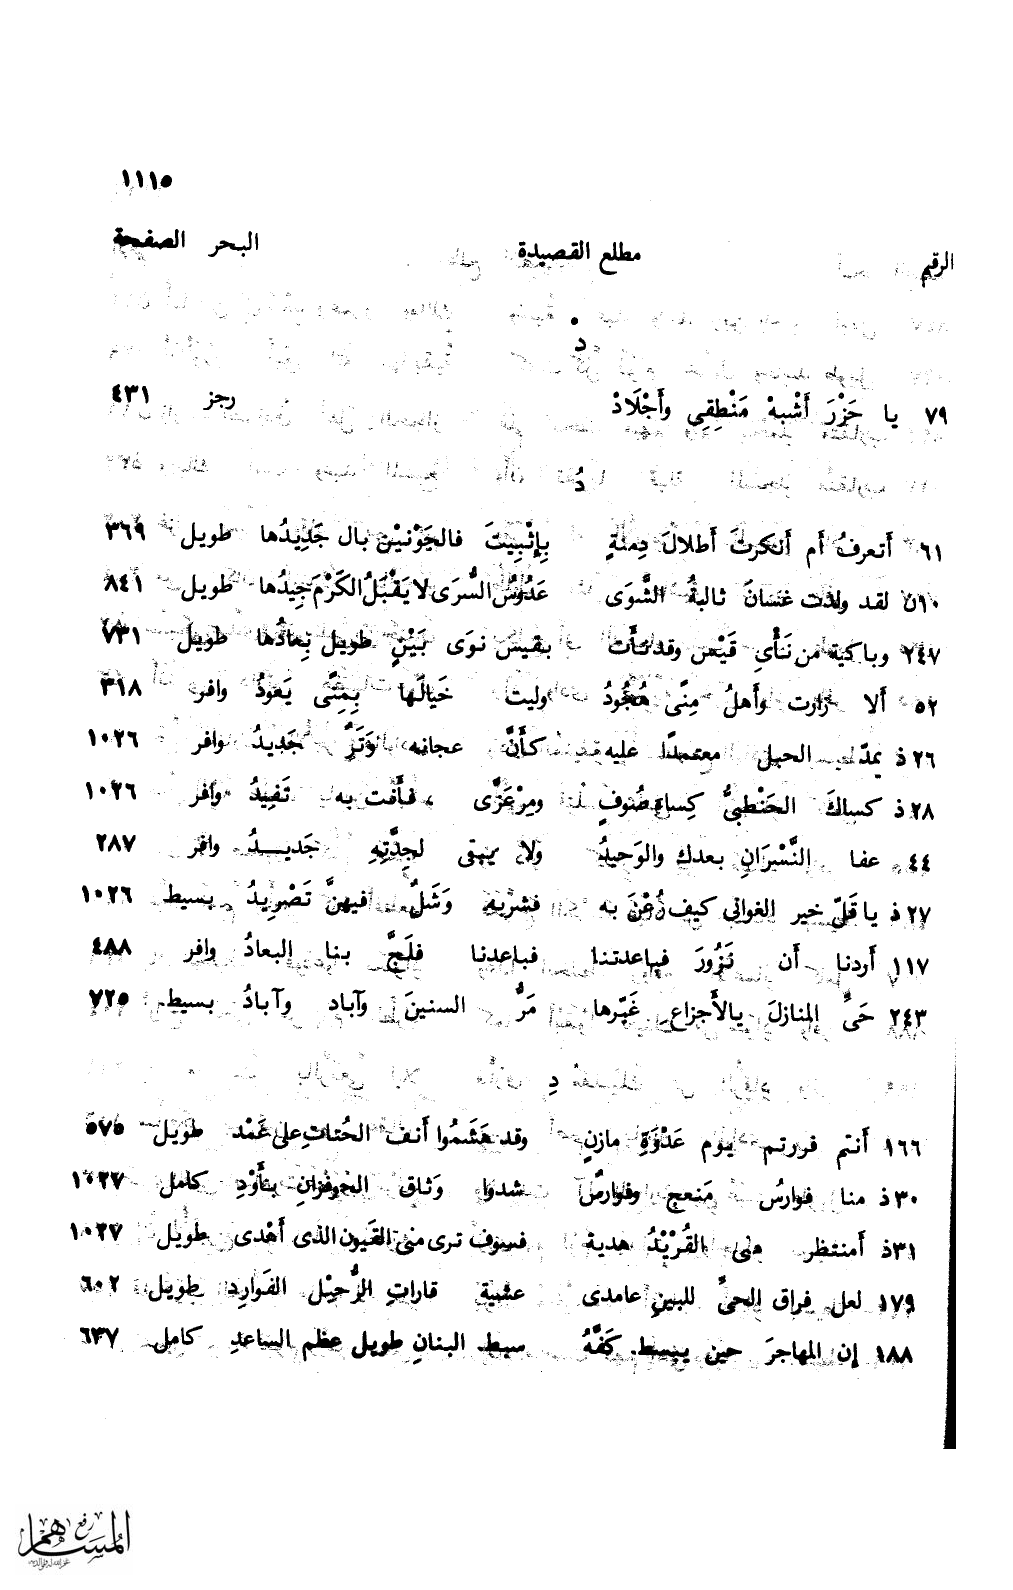 ١١١٥
الرقم مطلع القصيدة البحر الصفحة
دْ
٧٩ يا حَزْرَ أَشْبهْ مَنْطِقِي وأَجْلَادْ رجز ٤٣١
دُ
٦١ أَتعرفُ أَم أَنكرتَ أَطلالَ دِمنةٍ بِإِثْبِيتَ فالجَوْنيْنِ بال جَدِيدُها طويل ٣٦٩
١٠ن لقد ولدت غسانَ ثالبةُ الشَّوَى عَدُوسُ السُّرَى لا يَقْبَلُ الكَرْمَ جِيدُها طويل ٨٤١
٢٤٧ وباكية من نَأْىِ قَيْس وقد نأَت بقيس نوَى بَيْنٍ طويل بِعادُها طويل ٧٣١
٥٢ أَلا زارت وأَهلُ مِنًى هُجُودُ وليت خَيالَها بِمِنًى يَعودُ وافر ٣١٨
٢٦ذ يمدّ الحبل معتمدًا عليه كأَنَّ عجانه وَتَرٌ جَديدُ وافر ١٠٢٦
٢٨ذ كساكَ الحَنْطبىُّ كِساءَ صُوفٍ ومِرْعَزَّى فأَفت به تَفِيدُ وافر ١٠٢٦
٤٤ عفا النَّسْرَانِ بعدك والوَحيدُ ولا يبقى لجِدَّتِهِ جَديــدُ وافر ٢٨٧
٢٧ذ يا قَلّ خير الغواني كيف زُعْنَ به فشربه وَشَلٌ فيهنَّ تَصْرِيدُ بسيط ١٠٢٦
١١٧ أَردنا أَن نَزُورَ فباعدتنا فباعدنا فلَجَّ بنا البعادُ وافر ٤٨٨
٢٤٣ حَىِّ المنازلَ بالأَجزاعِ غَيّرها مَرُّ السنينَ وآباد وآبادُ بسيط ٧٢٥
دِ
١٦٦ أَنتم فررتم يوم عَدْوَةِ مازنٍ وقد هَشَمُوا أَنف الحُتاتِ على عَمْد طويل ٥٧٥
٣٠ذ منا فوارسُ مَنعج وفوارسٌ شدوا وَثاق الحوفزانِ بتأَوْدِ كامل ١٠٢٧
٣١ذ أَمنتظر منى القُرْيْدُ هدية فسوف ترى منى القَيون الذى أَهْدى طويل ١٠٢٧
١٧٩ لعل فراق الحىِّ للبينِ عامدى عشية قاراتِ الرُّحيْل الفَوارِدِ طويل ٦٠٢
١٨٨ إن المهاجرَ حين يبسط كَفَّهُ سبط البنانِ طويل عظم الساعدِ كامل ٦٣٧